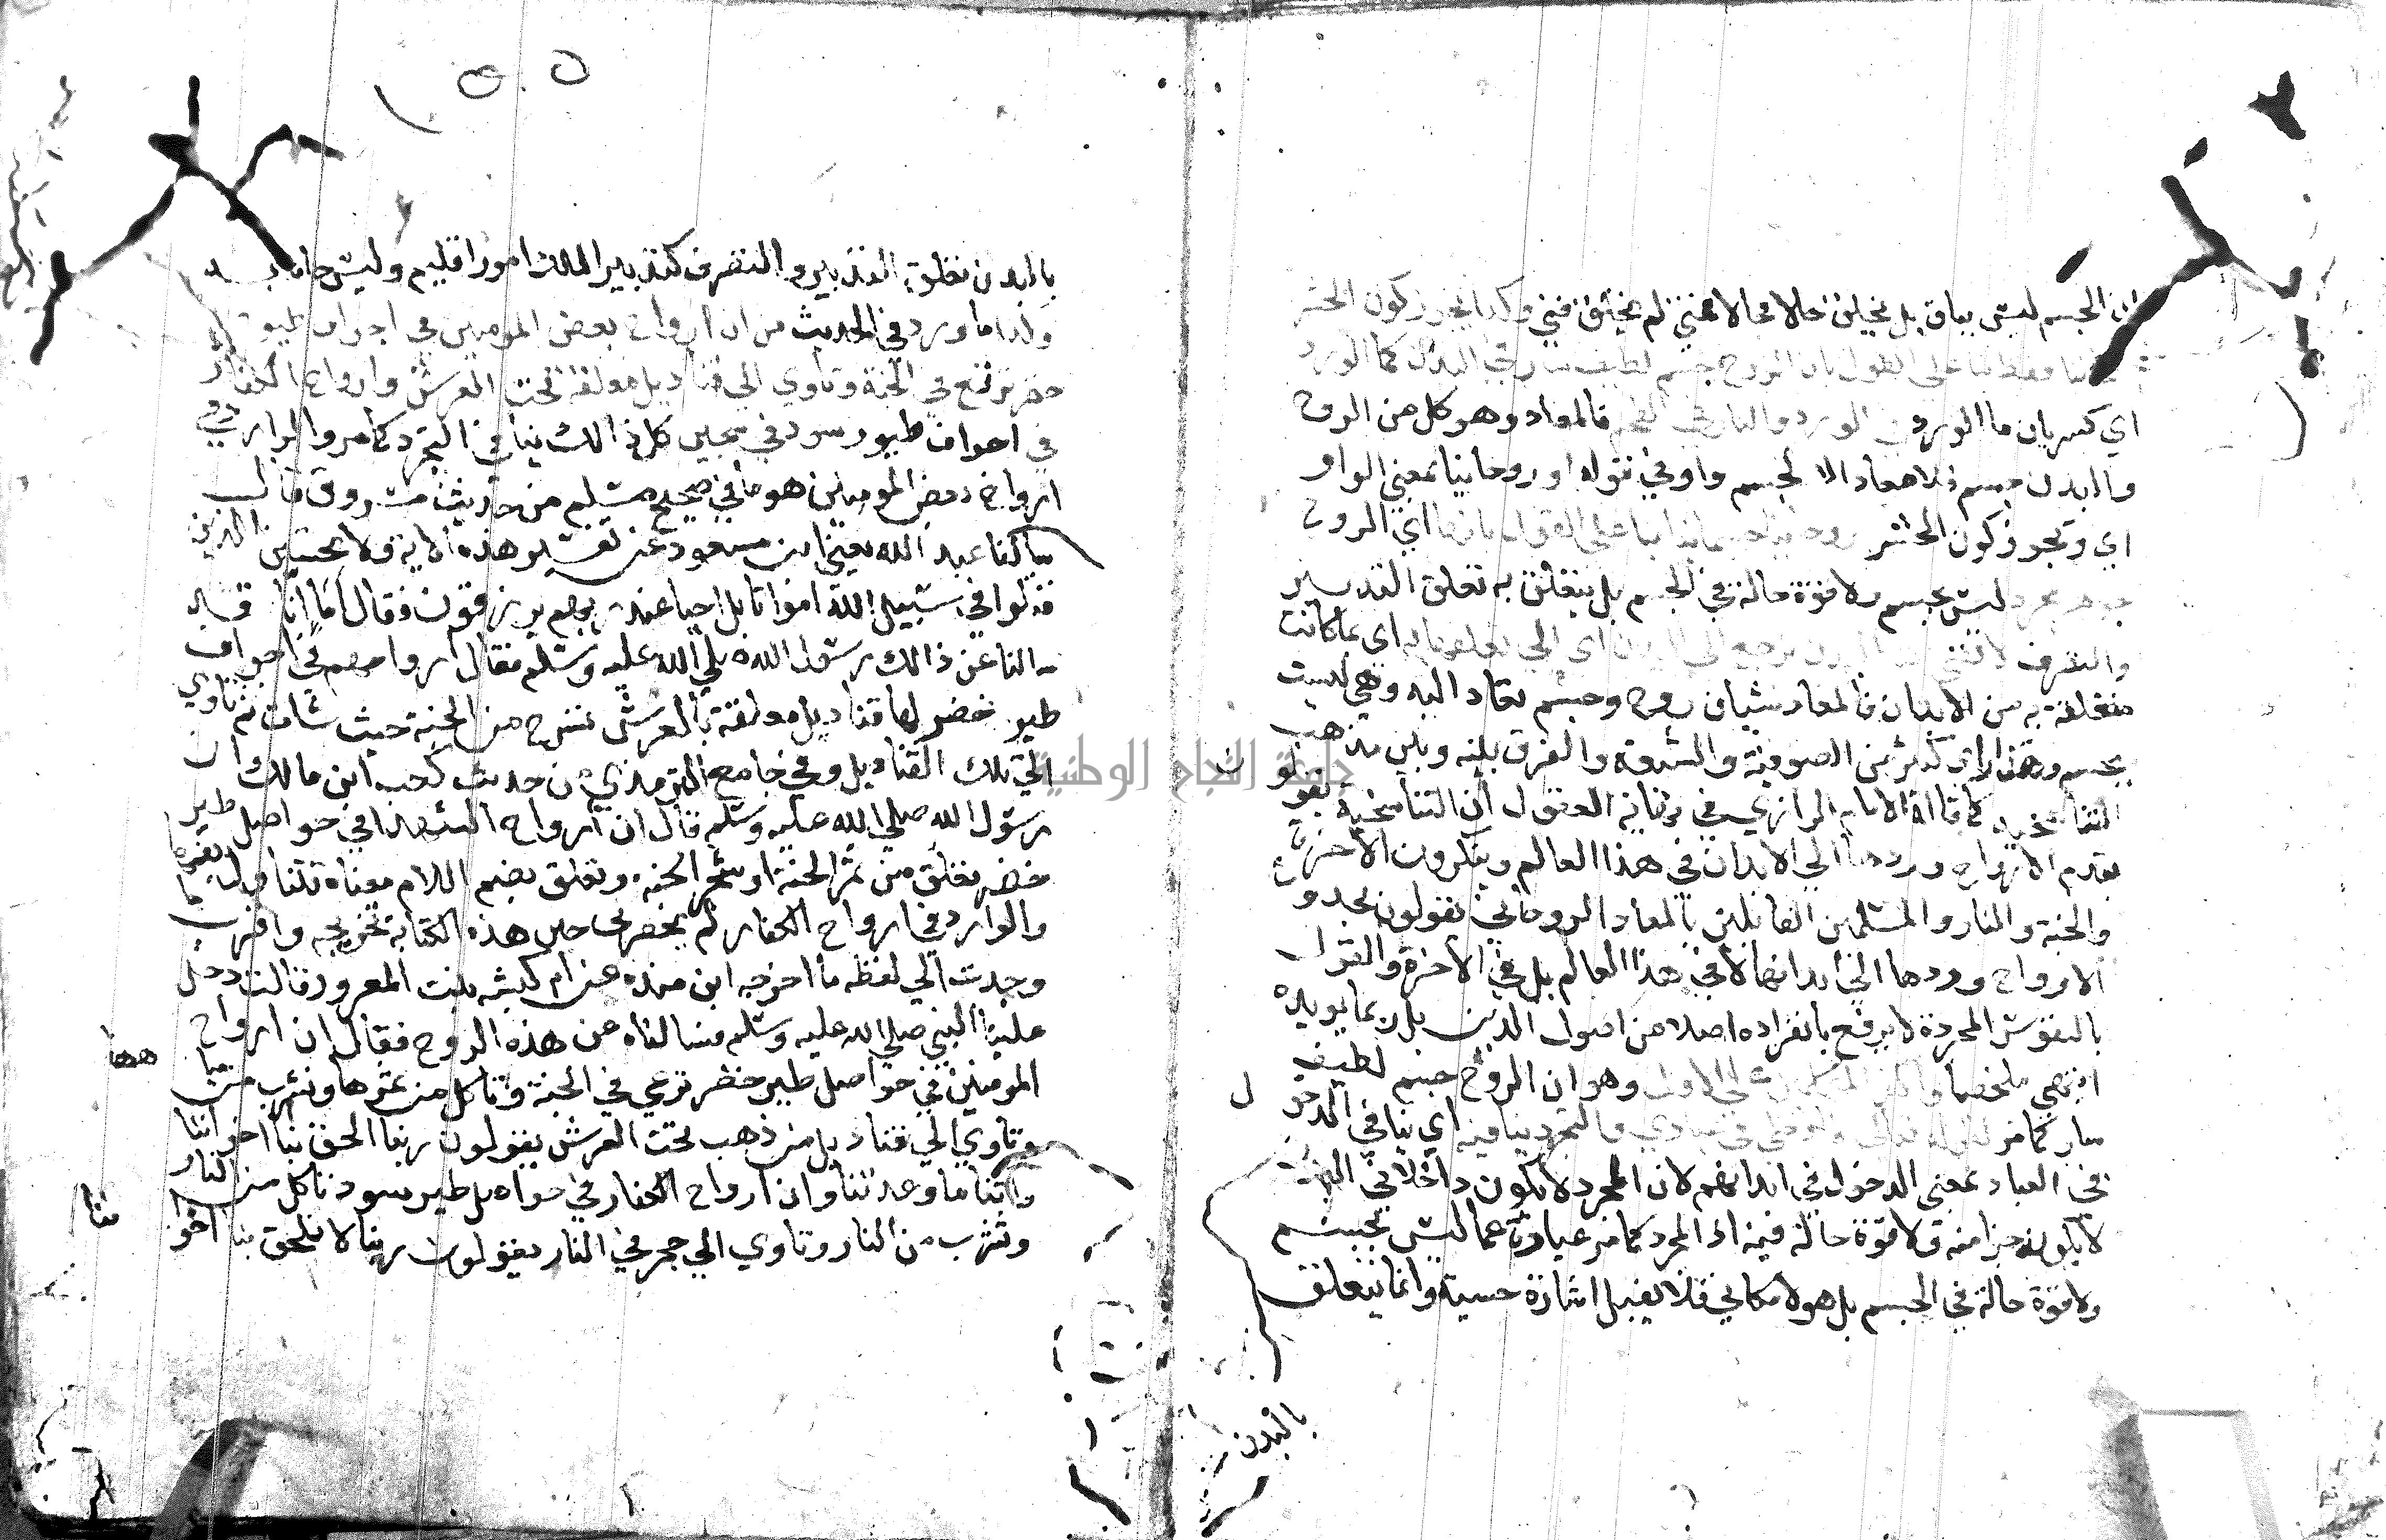 ان الجسم ليس بباق بل يخيلق حالا فحالا فمتي لم يخلق فني وكذا يجوز كون الحشر
على القول بان الروح جسم لطيف سار في البدن كما الورد
اي كسريان ما الورد في الورد والنار في الفحم فالمعاد وهو كل من الروح
والبدن جسم فلا معاد الا لجسم واو في قوله او روحانيا بمعني الواو
اي ويجوز كون الحشر روحانيا جسمانيا على القول بانها اي الروح
جوهر مجرد ليس بجسم ولا قوة حالة في الجسم بل يتعلق به تعلق التدبير
والتصرف لا تفني البدن ترجع الى البدن اى الي اى ما كانت
متعلقة به من الابدان فالمعاد شيان روح وجسم تعاد اليه وهي ليست
بجسم وهذا راى كثير من الصوفية والشيعة والفرق بينه وبين مذهب
التناسخية كما قاله الامام الرازي في نهاية العقول ان التناسخية يقولون
بقدم الارواح وردها الي الابدان في هذا العالم وينكرون الاخرة
والجنة والنار والمسلمين القائلين بالمعاد الروحاني يقولون بحدو
الارواح وردها الي ابدانها لا في هذا العالم بل في الاخرة والقول
بالنفوس المجردة لا يرفع بانفراده اصلا من اصول الدين بل ربما يويده
انتهي ملخصا على الاول وهو ان الروح جسم لطيف
سار كما مر لقوله تعالى فادخلي في عبادي والتجرد ينافيه اي ينافي الدخو ل
في العباد بمعني الدخول في ابدانهم لان المجرد لا يكون داخلا في البدن
لا يكون جزا منه ولا قوة حالة فيه اذ المجرد كما مر عبارة عما ليس بجسم
ولا قوة حالة في الجسم بل هو لا مكاني فلا يقبل اشارة حسية وانما يتعلق
بالبدن
بالبدن تعلق التدبير والتصرف كتدبير الملك امور اقليم وليس حالا به
وكذا ما ورد في الحديث من ان ارواح بعض المومنين في اجواف طيور
خضر ترتع في الجنة وتاوي الي قناديل معلقة تحت العرش وارواح الكفار
في اجواف طيور سود في سجين كل ذالك ينافي التجرد كما مر والوارد في
ارواح بعض المومنين هو ما في صحيح مسلم من حديث مسروق قال
سالنا عبد الله يعني ابن مسعود عن تفسير هذه الاية ولا تحسبن الذين
قتلوا في سبيل الله امواتا بل احيا عند ربهم يرزقون فقال اما انا قد
سالنا عن ذالك رسول الله صلي الله عليه وسلم فقال ارواحهم في اجواف
طير خضر لها قناديل معلقة بالعرش تسرح من الجنة حيث شات ثم تاوي
الي تلك القناديل وفي جامع الترمذي من حديث كعب ابن مالك ان
رسول الله صلي الله عليه وسلم قال ان ارواح الشهدا في حواصل طير
خضر تعلق من ثمر الجنة او شجر الجنة وتعلق بضم اللام معناه تتناول بفيها
والوارد في ارواح الكفار لم يحضرني حين هذه الكتابة تخريجه واقرب ما
وجدت الي لفظه ما اخرجه ابن منده عن ام كبشة بنت المعرور قالت دخل
علينا النبي صلي الله عليه وسلم فسالناه عن هذه الروح فقال ان ارواح
المومنين في حواصل طير خضر ترعي في الجنة وتاكل من ثمرها وتشرب من مياهها
وتاوي الي قناديل من ذهب تحت العرش يقولون ربنا الحق بنا اخواننا
واتنا ما وعدتنا وان ارواح الكفار في حواصل طير سود تاكل من النار
وتشرب من النار وتاوي الي جحر في النار يقولون ربنا لا تلحق بنا اخواننا
جامعة النجاح الوطنية